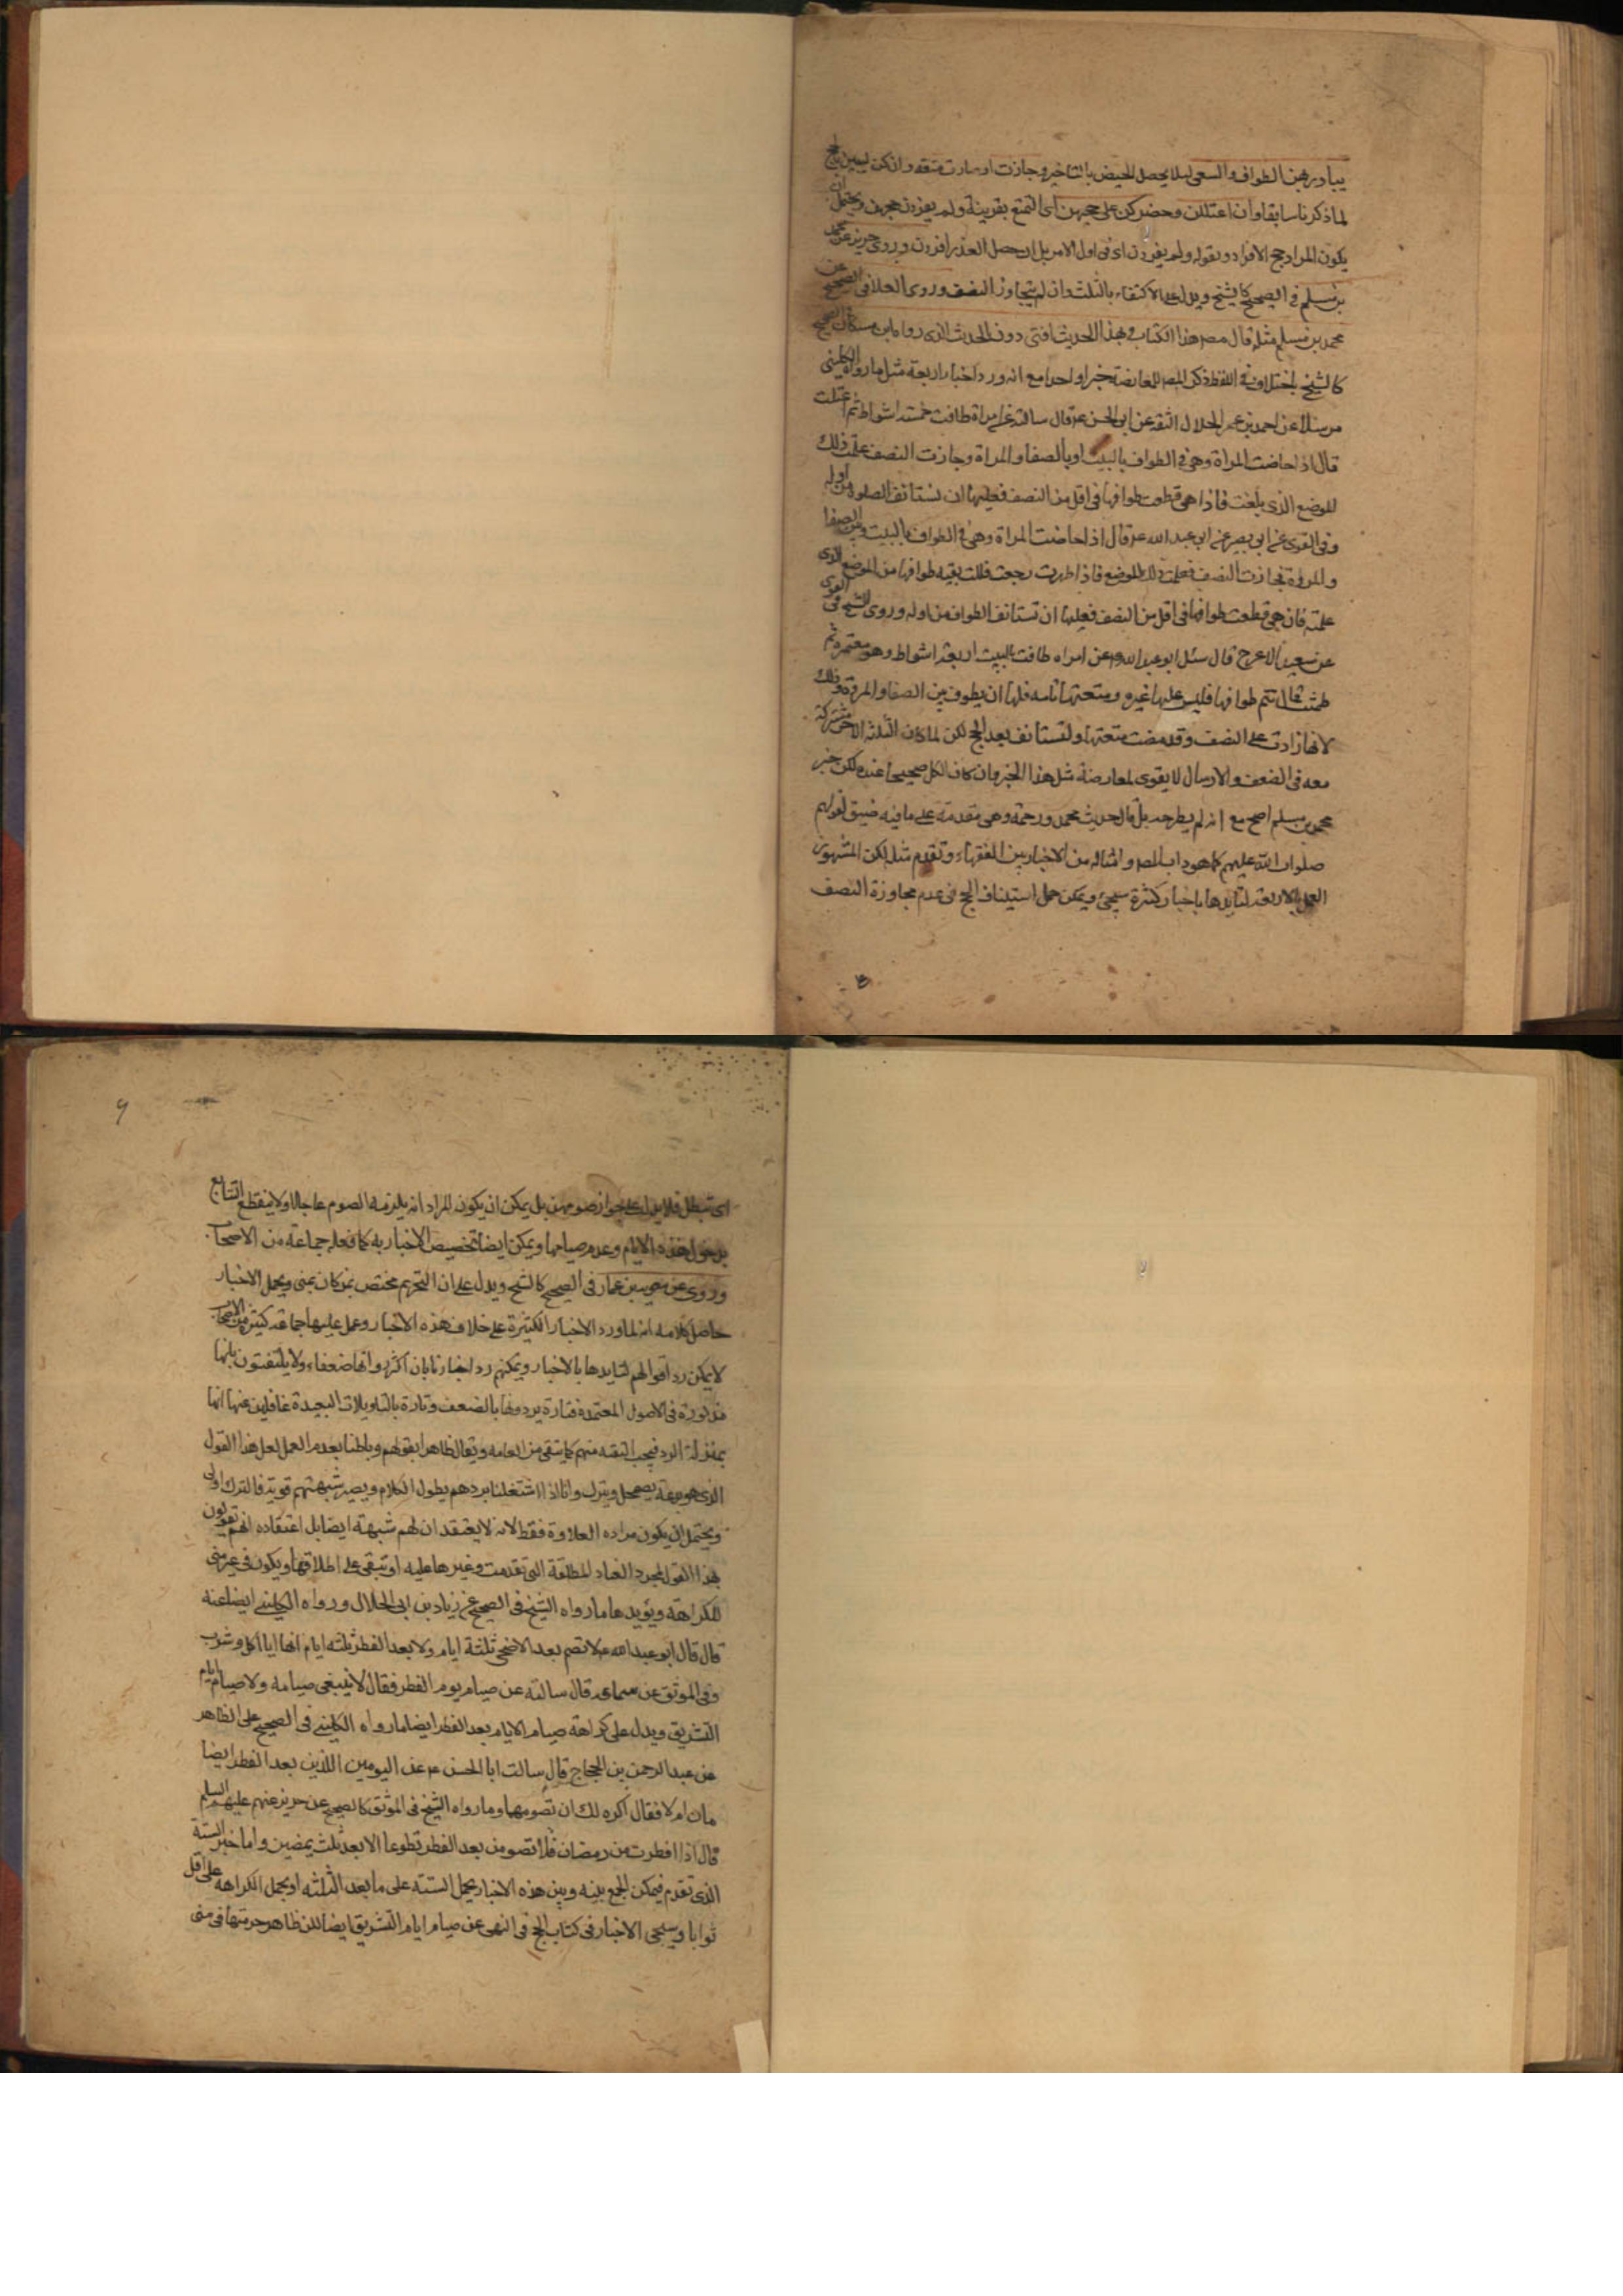 يبادرهن الطواف والسعي ليلا يحصل الحيض بالتاخير وجازت او صارت متعة وان كن ليبين بالحج
لما ذكرنا سابقا وان اعتللن وحضر كن على حجهن اى التمتع بقرينة ولم يفردن حجهن ويحتمل ان
يكون المراد حج الافراد وبقوله ولم يفردن اى فى اول الامر بل ان حصل العذر افردن وروى حريز عن محمد
بن مسلم فى الصحيح كالشيخ ويدل على الاكتفاء بالثلث وان لم يتجاوز النصف وروى العلا فى الصحيح عن
محمد بن مسلم مثله قال مصنف هذا الكتاب وبهذا الحديث افتى دون الحديث الذى رواه ابن مسكان فى الصحيح
كالشيخ باختلاف فى اللفظ ذكر المصر للمعارضة خبرا واحدا مع انه ورد اخبار اربعة مثل ما رواه الكلينى
مرسلا عن احمد بن عمر الحلال الثقة عن ابى الحسن ع قال سالته عن امراة طافت خمسة اشواط ثم اعتلت
قال اذا حاضت المراة وهى فى الطواف بالبيت او بالصفا والمراة وجازت النصف علمت ذلك
الموضع الذى بلغت فاذا هى قطعت طوافها فى اقل من النصف فعليها ان تستانف الصلوة من اوله
وفى القوى عن ابى بصير عن ابى عبد الله ع قال اذا حاضت المراة وهى فى الطواف بالبيت وبين الصفا
والمروة فجازت النصف فعلمت ذلك الموضع فاذا طهرت رجعت فاتمت بقية طوافها من الموضع الذى
علمته فان هى قطعت طوافها فى اقل من النصف فعليها ان تستانف الطواف من اوله وروى الشيخ فى القوى
عن سعيد الاعرج قال سئل ابو عبد الله ع عن امراه طافت بالبيت اربعة اشواط وهى معتمرة ثم
طمثت قال تتم طوافها فليس عليها غيره ومتعتها تامه فلها ان يطوف بين الصفا والمروة وذلك
لانها زادت على النصف وقد مضت متعتها ولتستانف بعد الحج لكن لما كان الثلثه الاخر مشتركة
معه فى الضعف والارسال لا يقوى لمعارضة مثل هذا الخبر وان كان الكل صحيحا عنده لكن خبر
محمد بن مسلم اصح مع انه لم يطرحه بل قال حديث محمد ورحمة وهى مقدمة على ما فيه ضيق لقولهم
صلوات الله عليهم كما هو داب المصر وامثاله من الاخباريين الفقهاء وتقدم مثله لكن المشهور
العمل بالاربعة لتايدها باخبار كثيرة سيجئ ويمكن حمل استيناف الحج فى عدم مجاوزة النصف
٩
اى تبطل فلا يدل على جواز صومهن بل يمكن ان يكون المراد انه يلزمه الصوم عاجلا ولا ينقطع التتابع
بدخول هذه الايام وعدم صيامها ويمكن ايضا تخصيص الاخبار به كما فعله جماعة من الاصحاب
وروى عن معوية بن عمار فى الصحيح كالشيخ ويدل على ان التحريم مختص بمن كان بمنى ويحمل الاخبار
حاصل كلامه انه لما ورد الاخبار الكثيرة على خلاف هذه الاخبار وعمل عليها جماعة كثيرة من الاصحاب
لا يمكن رد اقوالهم لتايدها بالاخبار ويمكنهم رد اخبارنا بان اكثر رواتها ضعفاء ولا يلتفتون بانها
مذكورة فى الاصول المعتمدة فتارة يردونها بالضعف وتارة بالتاويلات البعيدة غافلين عنها انها
بمنزلة الرد فيجب التقية منهم كما يتقى من العامه ويقال ظاهرا بقولهم وباطنا بعدم العمل لعل هذا القول
الذى هو بدعة يضمحل ويترك وانا اذا اشتغلنا بردهم يطول الكلام ويصير شبهتهم قوية فالترك اولى
ويحتمل ان يكون مراده العلاوة فقط لانه لا يعتقد ان لهم شبهته ايضا بل اعتقاده انهم يقولون
بهذا القول لمجرد العناد المطلقة التى تقدمت وغيرها عليه او تبقى على اطلاقها ويكون فى غير منى
للكراهة ويؤيدها ما رواه الشيخ فى الصحيح عن زياد بن ابى الحلال ورواه الكلينى ايضا عنه
قال قال ابو عبد الله ع لا تصم بعد الاضحى ثلثة ايام ولا بعد الفطر ثلثه ايام انها ايام اكل وشرب
وفى الموثق عن سماعة قال سالته عن صيام يوم الفطر فقال لا ينبغى صيامه ولا صيام ايام
التشريق ويدل على كراهة صيام الايام بعد الفطر ايضا ما رواه الكلينى فى الصحيح على الظاهر
عن عبد الرحمن بن الحجاج قال سالت ابا الحسن ع عن اليومين اللذين بعد الفطر ايضا
مان ام لا فقال اكره لك ان تصومهما وما رواه الشيخ فى الموثق كالصحيح عن حريز عنهم عليهم السلم
قال اذا افطرت من رمضان فلا تصومن بعد الفطر تطوعا الا بعد ثلث يمضين واما خبر الستة
الذى تقدم فيمكن الجمع بينه وبين هذه الاخبار بحمل الستة على ما بعد الثلثه او بحمل الكراهه على اقل
ثوابا وسيجى الاخبار فى كتاب الحج فى النهى عن صيام ايام التشريق ايضا لكن ظاهر حرمتها فى منى